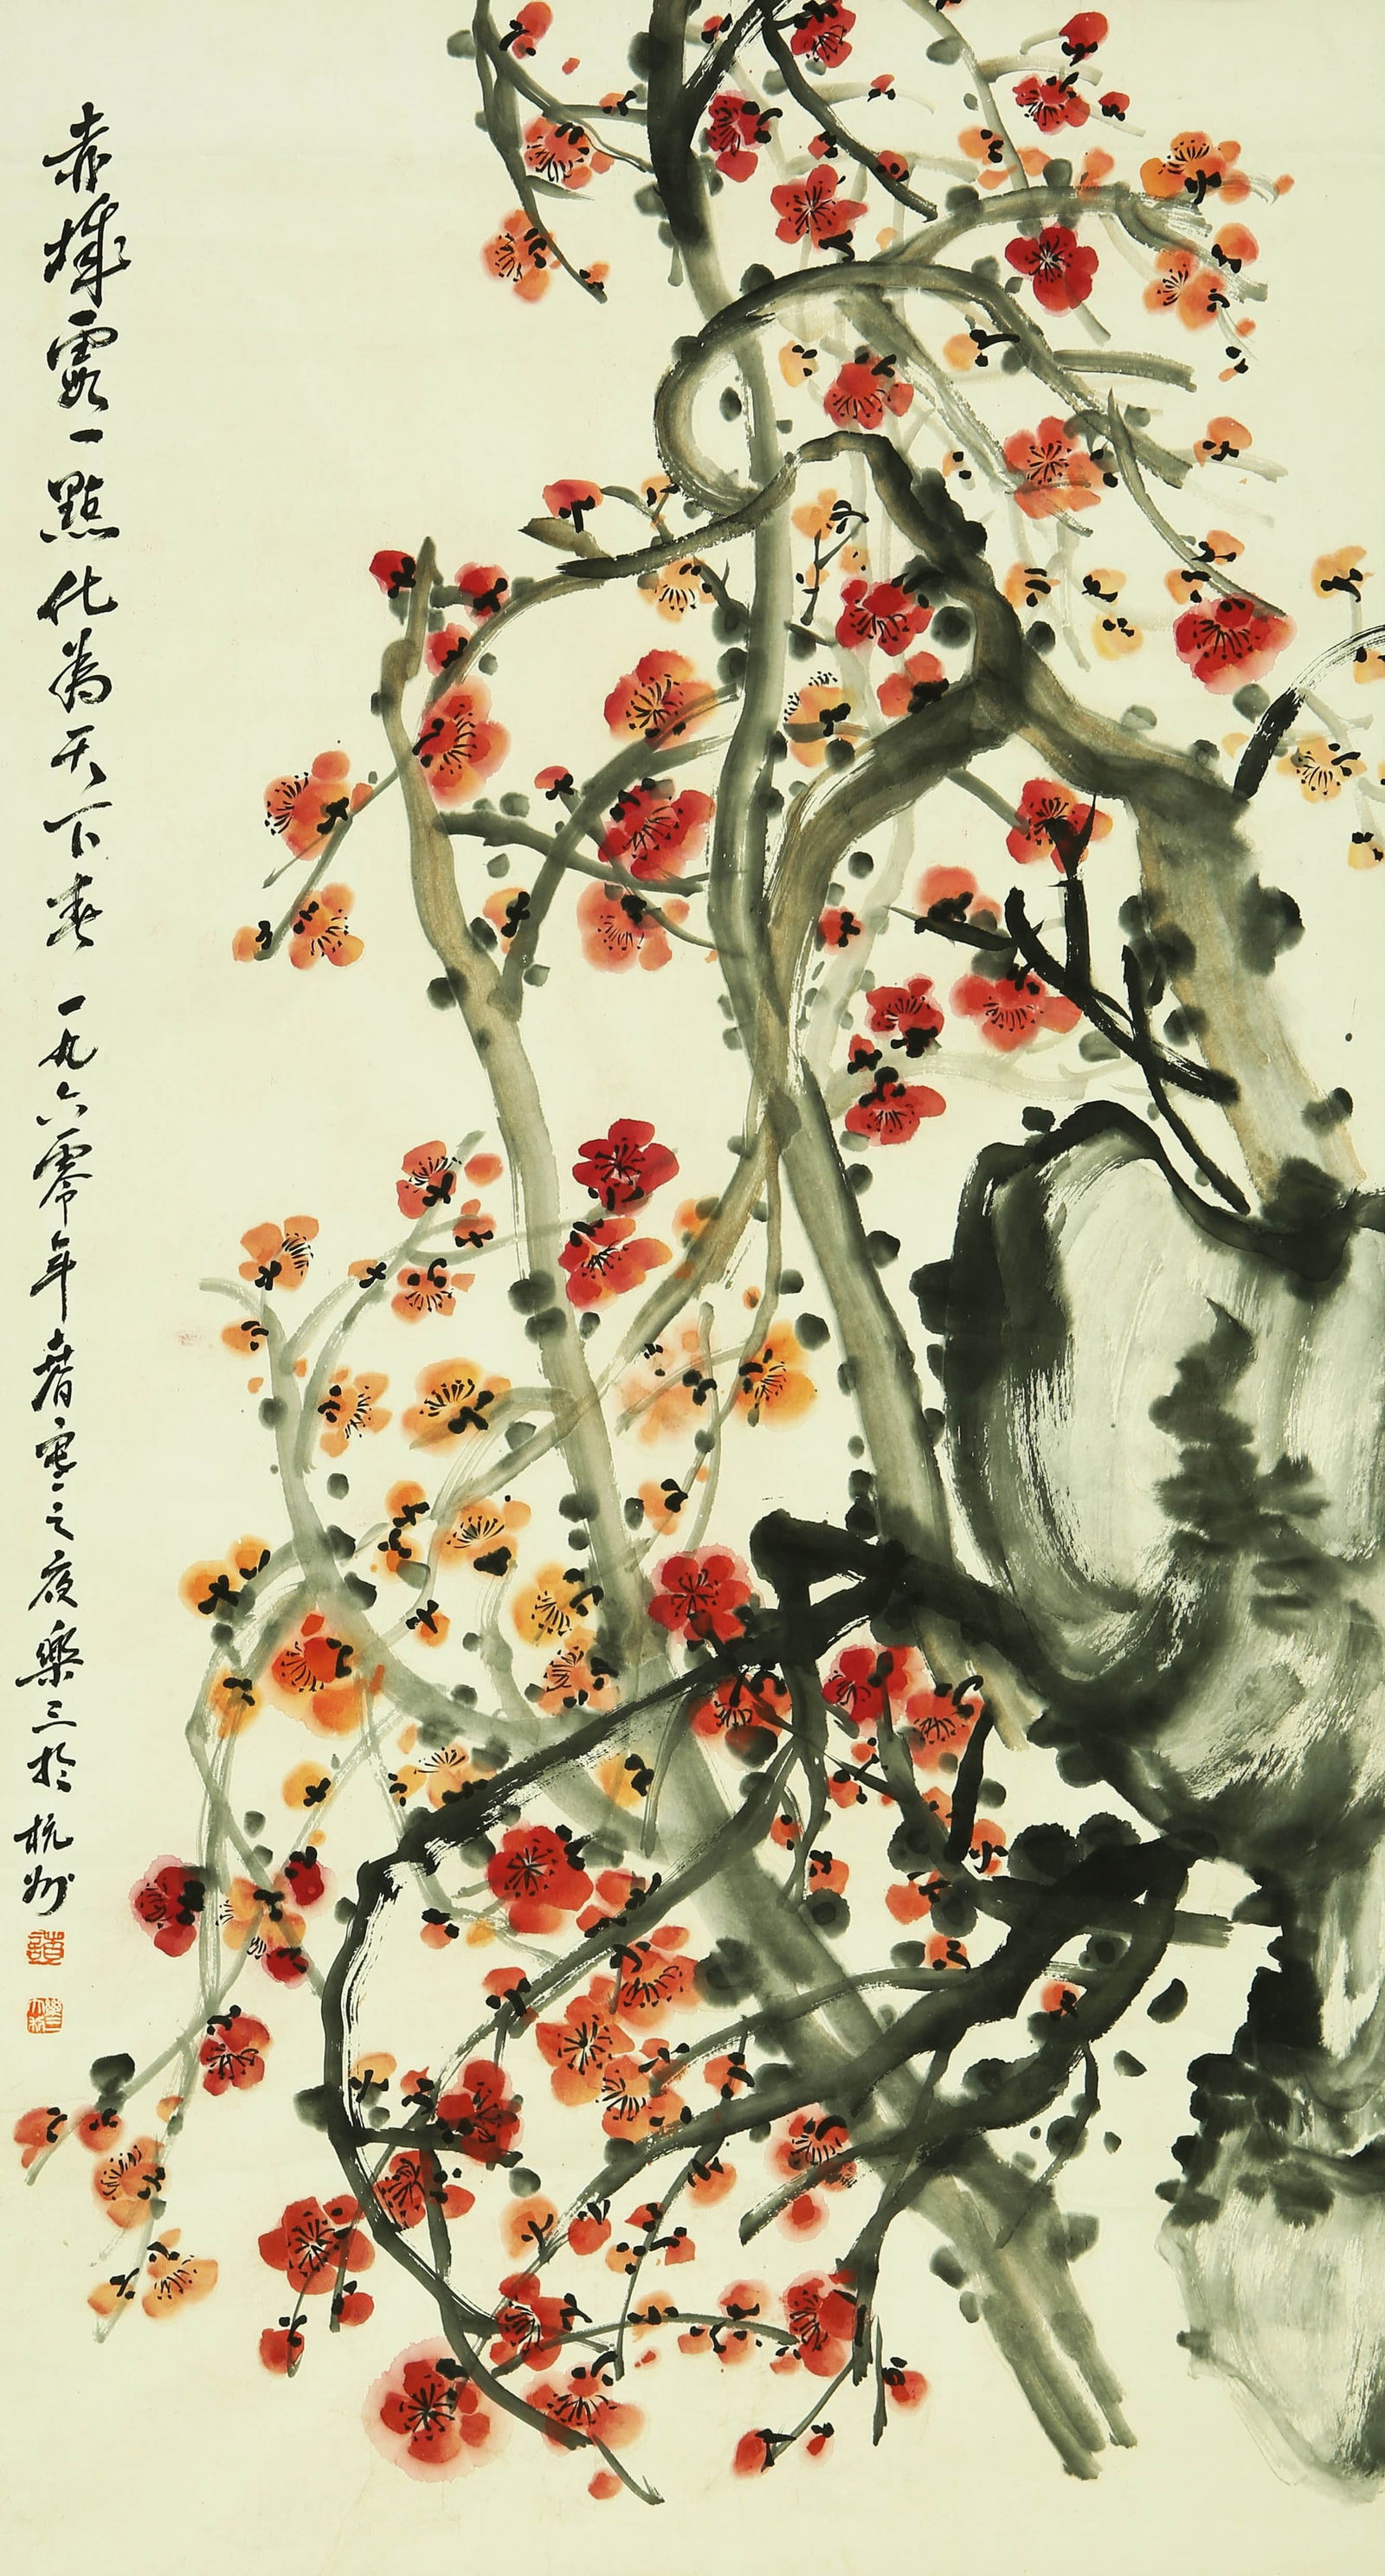 赤城霞一點化為天下春 一九六零年春寒之夜樂三於杭州